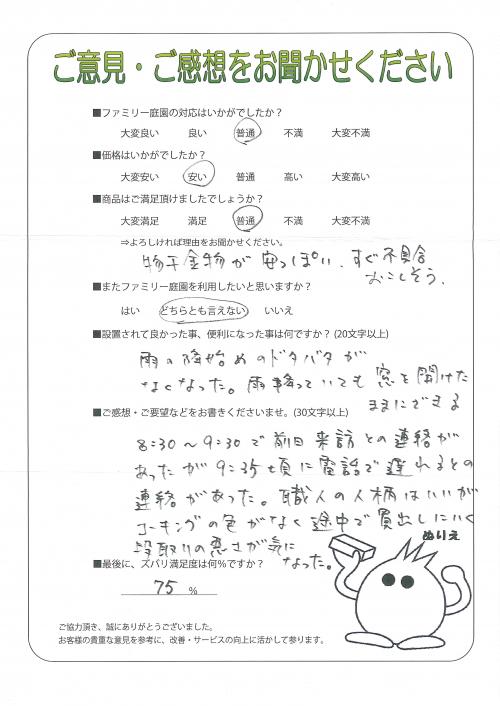 ご意見・ご感想をお聞かせください
■ファミリー庭園の対応はいかがでしたか？
大変良い 良い 普通 不満 大変不満
■価格はいかがでしたか？
大変安い 安い 普通 高い 大変高い
■商品はご満足頂けましたでしょうか？
大変満足 満足 普通 不満 大変不満
⇒よろしければ理由をお聞かせください。
物干金物が安っぽい、すぐ不具合
おこしそう。
■またファミリー庭園を利用したいと思いますか？
はい どちらとも言えない いいえ
■設置されて良かった事、便利になった事は何ですか？(20文字以上)
雨の降始めのドタバタが
なくなった。雨降っていても窓を開けた
ままにできる
■ご感想・ご要望などをお書きくださいませ。(30文字以上)
8:30～9:30で前日来訪との連絡が
あったが9:35頃に電話で遅れるとの
連絡があった。職人の人柄はいいが
コーキングの色がなく途中で買出しにいく
段取りの悪さが気に
なった。
ぬりえ
■最後に、ズバリ満足度は何％ですか？
75 %
ご協力頂き、誠にありがとうございました。
お客様の貴重な意見を参考に、改善・サービスの向上に活かして参ります。